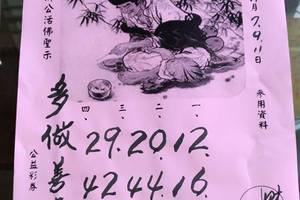 公活佛聖示
月7.9.11日
參用資料
多做善
公益彩券
四、三、二、一、
29.20.12.
42.44.16.